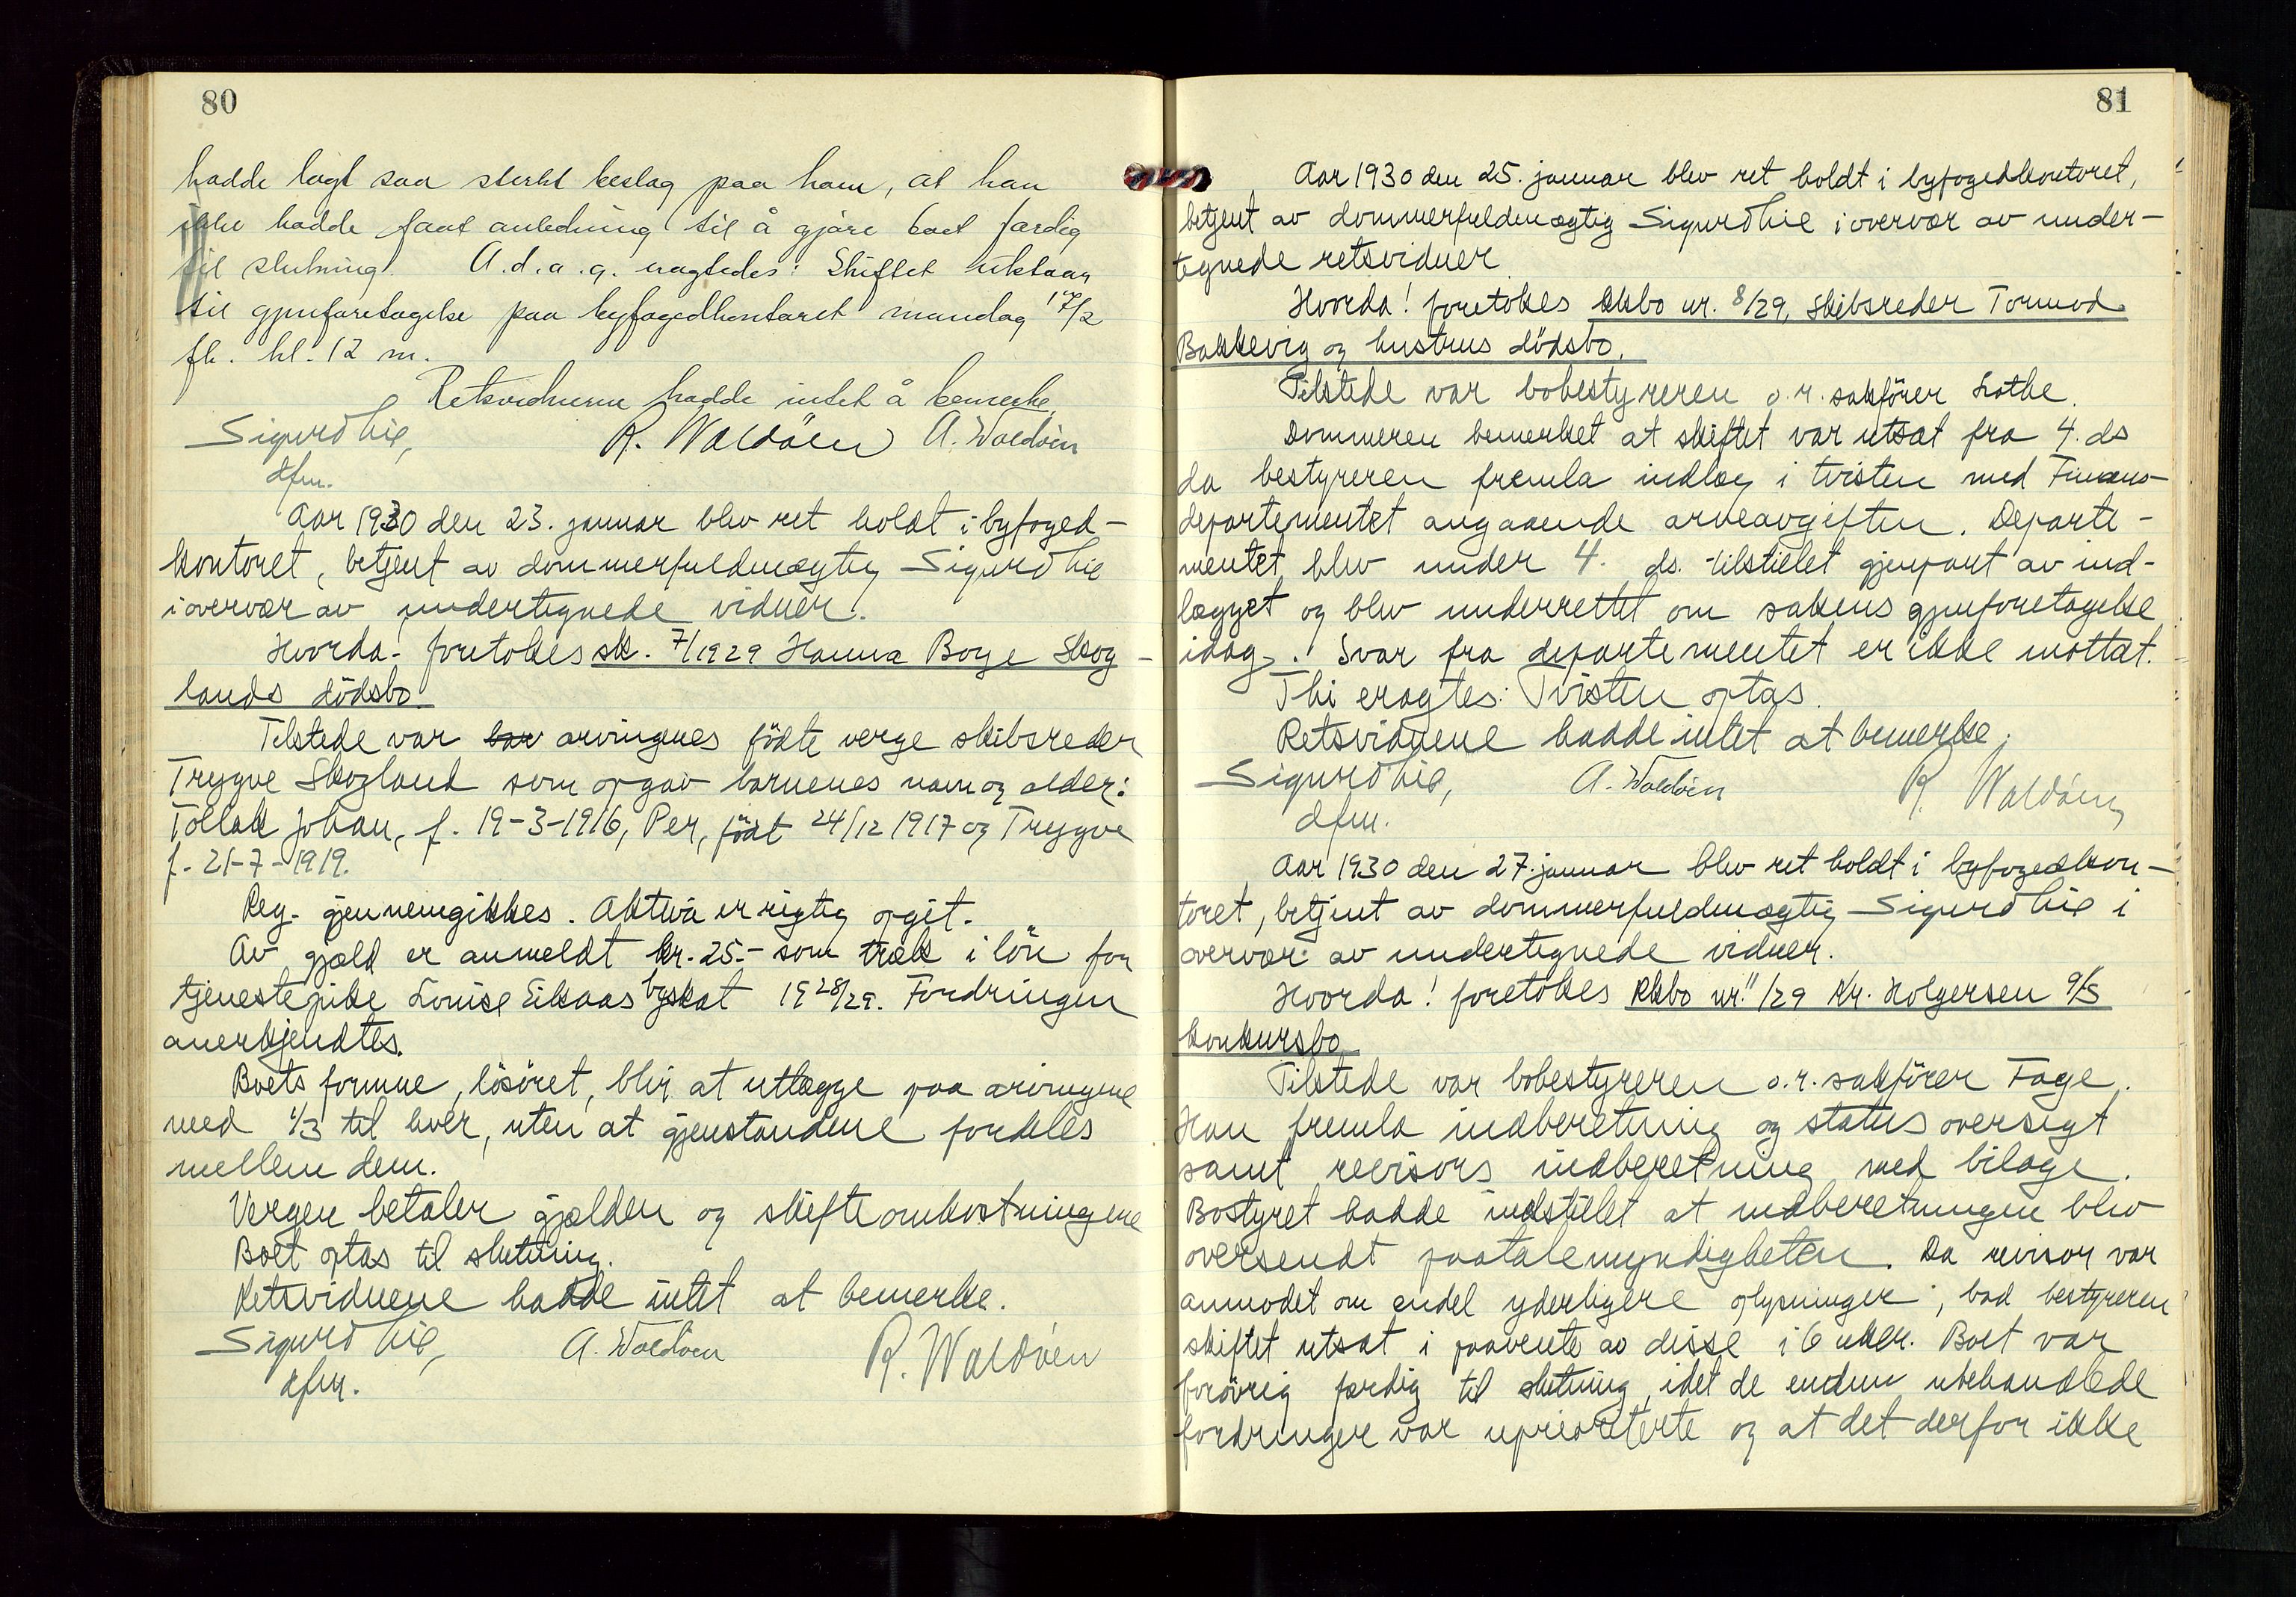 80
hadde lagt saa sterkt beslag paa ham, at han
ikke hadde faat anledning til å gjøre boet færdig
til slutning. A.d.a.g. eragtedes: Skiftet utstaar
til gjenforetagelse paa byfogedkontoret mandag 17/2
fk. kl. 12 m.
Retsvidnerne hadde intet å bemerke.
Sigurd Lie, R. Waldöen A. Waldöen
dfm.
Aar 1930 den 23. januar blev ret holdt i byfoged-
kontoret, betjent av dommerfuldmægtig Sigurd Lie
i overvær av undertegnede vidner.
Hvorda. foretokes sk. 7/1929 Hanna Boye Skog-
lands dödsbo.
Tilstede var bar arvingnes födte verge skibsreder
Trygve Skogland som opgav barnenes navn og alder:
Tollak Johan, f. 19-3-1916, Per, födt 24/12 1917 og Trygve
f. 21-7-1919.
Reg. gjennemgikkes. Aktiva er rigtig opgit.
Av gjæld er anmeldt kr. 25.- som træk i lön for
tjenestepike Louise Eikaas byskat 1928/29. Fordringen
anerkjendtes.
Boets formue, lösöret, blir at utlægge paa arvingene
med 1/3 til hver, uten at gjenstandene fordeles
mellem dem.
Vergen betaler gjælden og skifteomkostningene
Boet optas til slutning.
Retsvidnene hadde intet at bemerke.
Sigurd Lie, A. Waldöen R. Waldöen
dfm.
81
Aar 1930 den 25. januar blev ret holdt i byfogedkontoret,
betjent av dommerfuldmægtig Sigurd Lie i overvær av under-
tegnede retsvidner
Hvorda! foretokes skbo nr. 8/29, Skibsreder Tormod
Bakkevig og hustrus dödsbo.
Tilstede var bobestyreren o.r. sakförer Lothe.
Dommeren bemerket at skiftet var utsat fra 4. ds
da bestyreren fremla indlæg i tvisten med Finans-
departementet angaaende arveavgiften. Departe-
mentet blev under 4. ds. tilstillet gjenpart av ind-
lægget og blev underrettet om sakens gjenforetagelse
idag. Svar fra departementet er ikke mottat.
Thi eragtes: Tvisten optas.
Retsvidnene hadde intet at bemerke.
Sigurd Lie, A. Waldöen R. Waldöen
dfm.
Aar 1930 den 27. januar blev ret holdt i byfogedkon-
toret, betjent av dommerfuldmægtig Sigurd Lie i
overvær av undertegnede vidner.
Hvorda! foretokes kkbo nr. 11/29 Kr. Holgersen A/S
konkursbo
Tilstede var bobestyreren o.r. sakförer Fage.
Han fremla indberetning og status oversigt
samt revisors indberetning med bilage.
Bostyret hadde indstillet at indberetningen blev
oversendt paatalemyndigheten. Da revisor var
anmodet om endel yderligere oplysninger, bad bestyreren
skiftet utsat i paavente av disse i 6 uker. Boet var
forövrig færdig til slutning, idet de endnu ubehandlede
fordringer var uprioriterte og at det derfor ikke